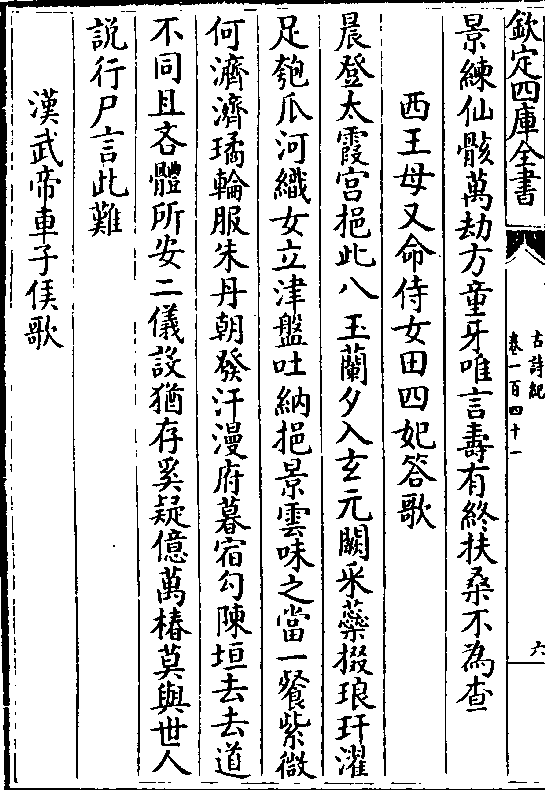 欽定四庫全書
古詩紀
卷一百四十一
六
景練仙骸萬劫方童牙唯言壽有終扶桑不為查
西王母又命侍女田四妃答歌
晨登太霞宫挹此八玉蘭夕入玄元闕采蘂掇琅玕濯
足匏爪河織女立津盤吐納挹景雲味之當一餐紫微
何濟濟璚輪服朱丹朝發汗漫府暮宿勾陳垣去去道
不同且各體所安二儀設猶存奚疑億萬椿莫與世人
説行尸言此難
漢武帝車子侯歌